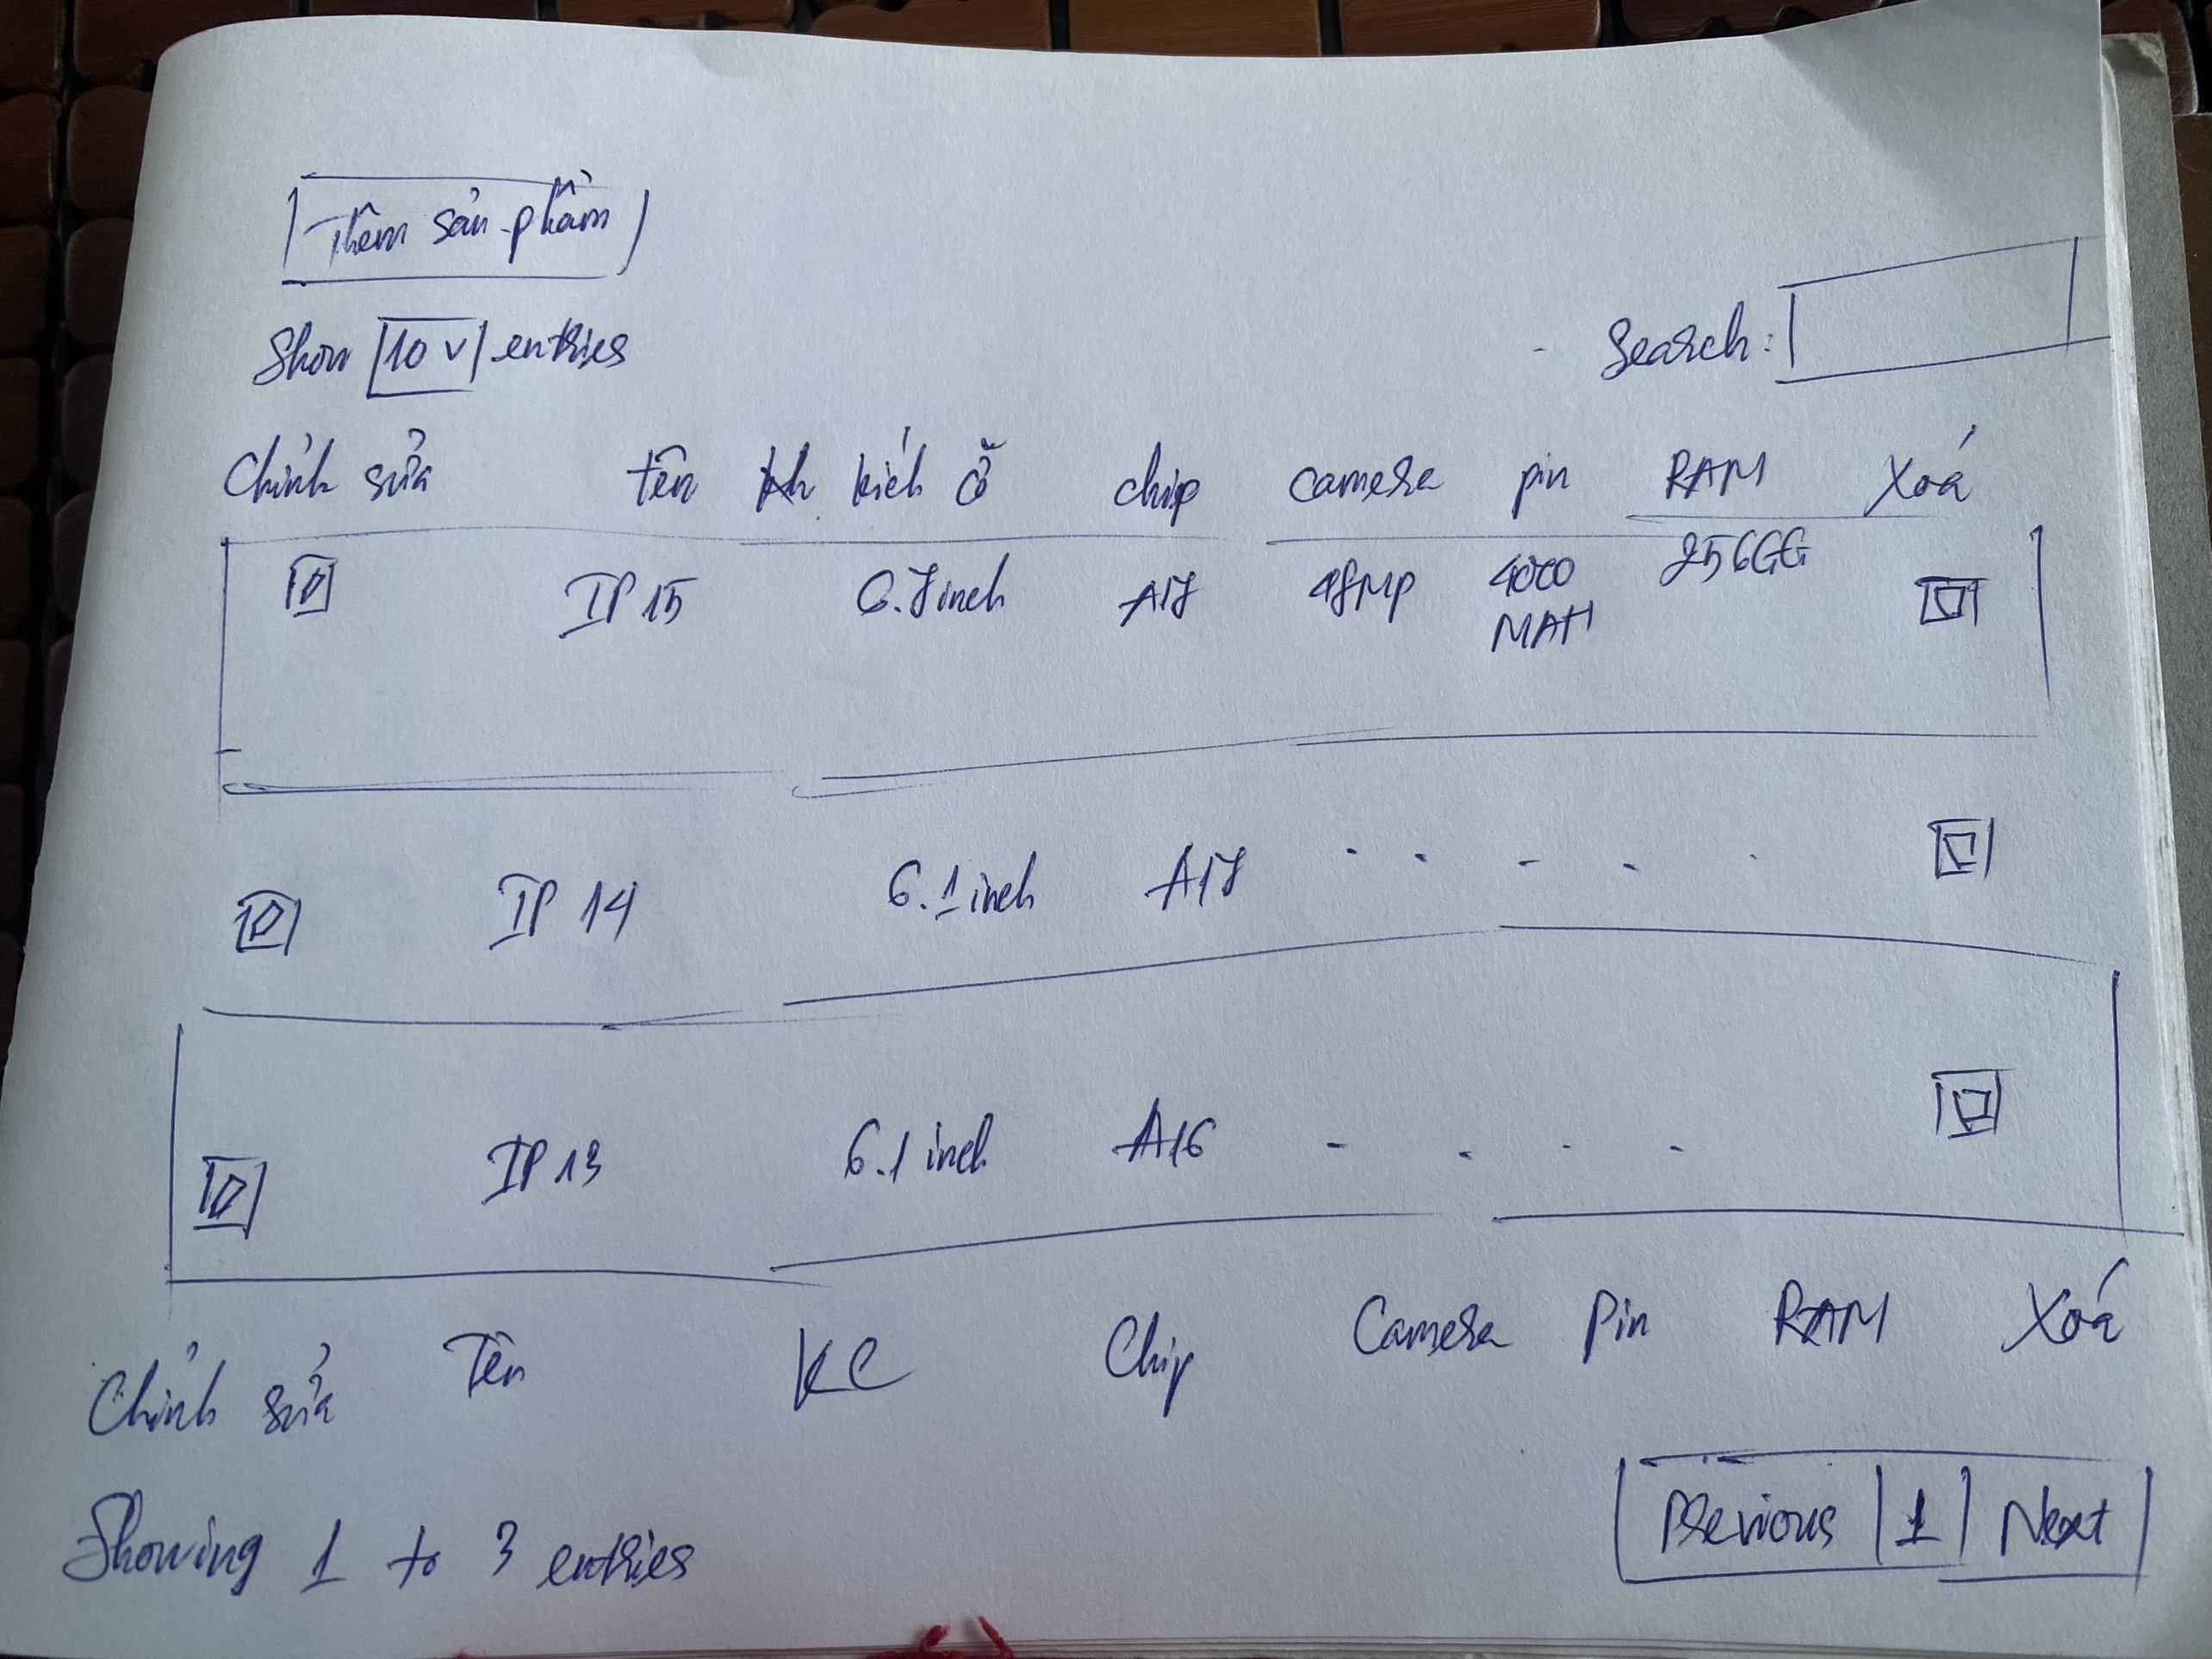 Thêm sản phẩm
Show 10 v entries
Search:
Chỉnh sửa tên kích cỡ chip camera pin RAM Xoá
IP 15 6.7 inch A17 48MP 4000 MAH 256GG
IP 14 6.1 inch A17 . . - - .
IP 13 6.1 inch A16 - . . .
Chỉnh sửa Tên KC Chip Camera Pin RAM Xoá
Showing 1 to 3 entries
Previous 1 Next